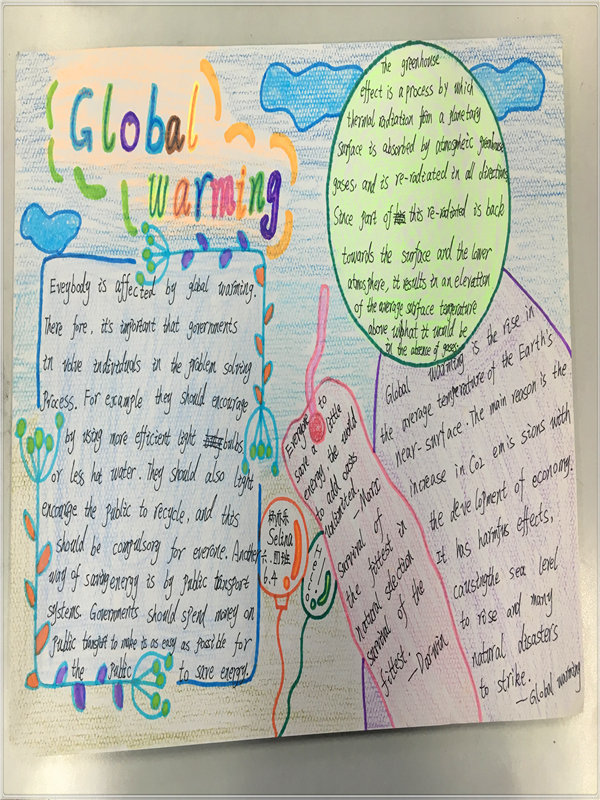 Global
warming
The greenhouse
effect is a process by which
thermal radiation from a planetary
surface is absorbed by atmospheric greenhouse
gases, and is re-radiated in all directions,
Since part of this re-radiated is back
towards the surface and the lower
atmosphere, it results in an elevation
of the average surface temperature
above what it would be
in the absence of gases.
Eveybody is affected by global warming.
There fore, it's important that governments
in volve individuals in the problem solving
process. For example they should encourage
by using more efficient light bulbs
or less hot water. They should also light
encourage the public to recycle, and this
should be compulsory for everone. Another
way of saving energy is by public transport
systems. Governments should spend money on
public transport to make is as easy as possible for
the public to save energy.
Selina
六.四班
6.4
Hello
Everyone to
save a little
energy, the world
to add oasis
unlimited.
—Marx
Survival of
the fittest in
natural selection
survival of the
fittest.
—Darwin
Global warming is the rise in
the average temperature of the Earth's
near-surface. The main reason is the
increase in Co2 emis sions with
the development of economy.
It has harmfus effects,
causingthe sea level
to rise and many
natural disasters
to strike.
—Global warming